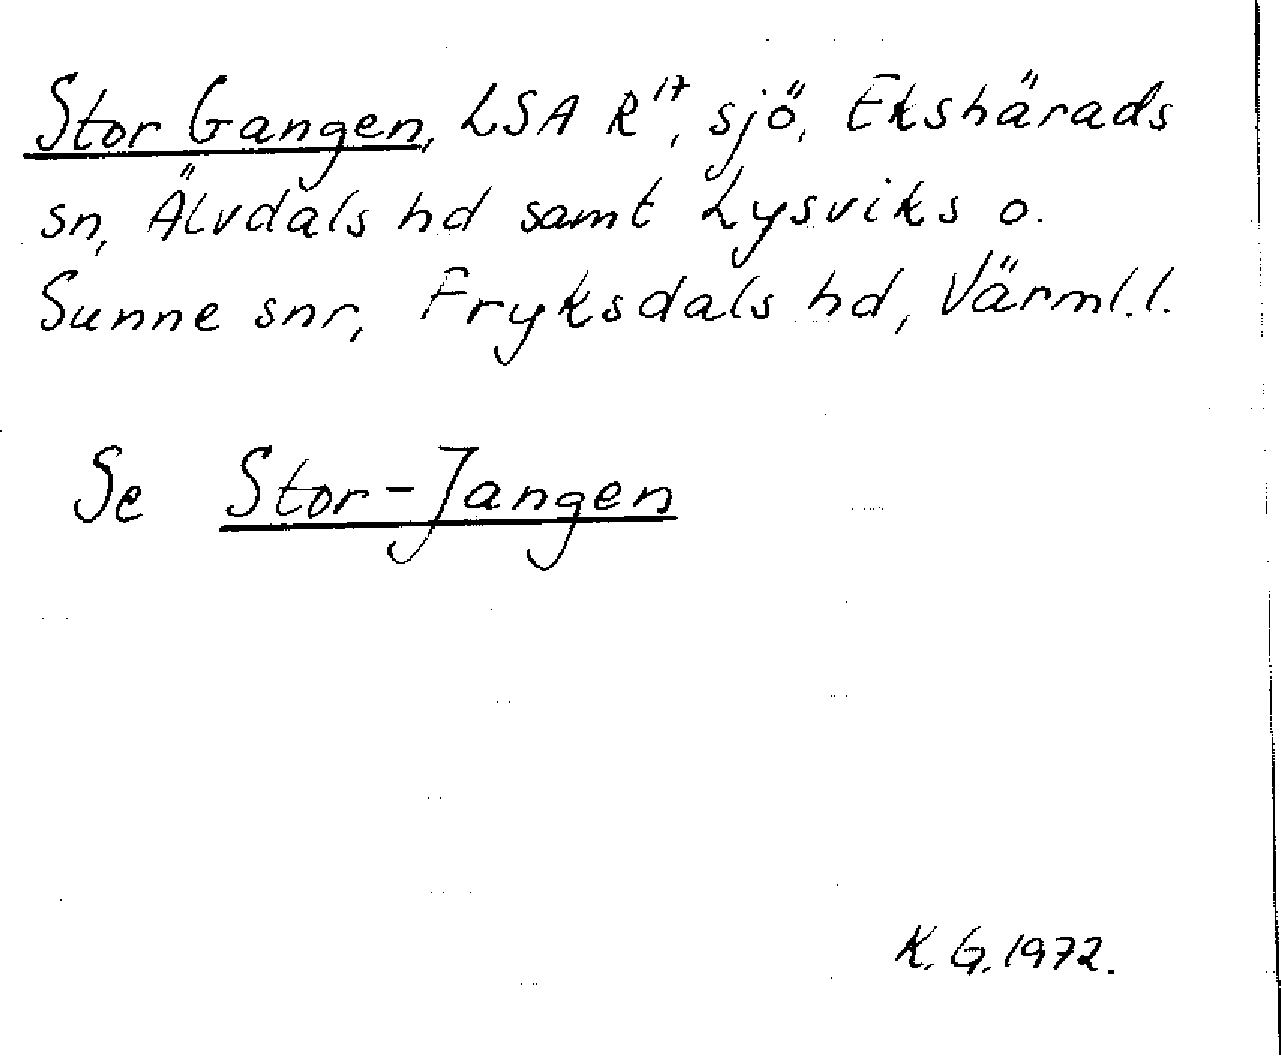 Stor Gangen, LSA R¹⁷, sjö, Ekshärads
sn, Älvdals hd samt Lysviks o.
Sunne snr, Fryksdals hd, Värml.l.
Se Stor-Jangen
K.G.1972.